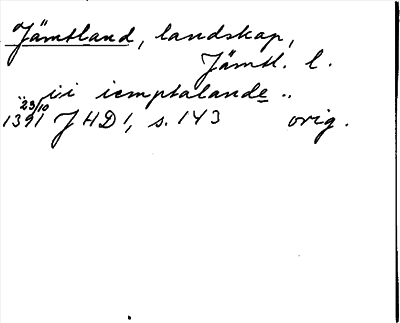 Jämtland, landskap,
Jämtl. l.
.. i i iemptalande ..
23/10
1391 JHD 1, s. 143 orig.